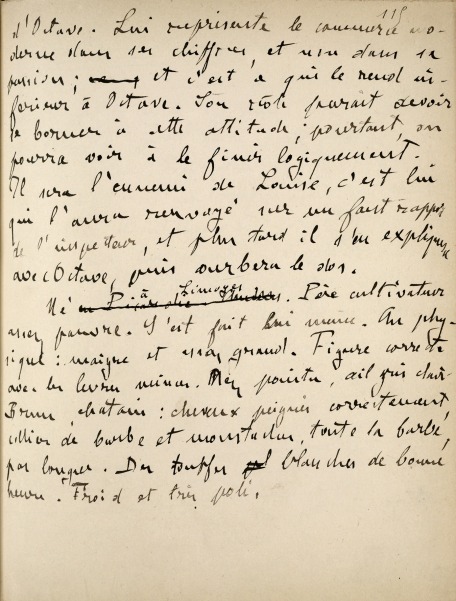 115
d'Octave. Lui représente le commerce mo-
derne dans ses chiffres, et non dans sa
passion; et c'est ce qui le rend in-
férieur à Octave. Son rôle paraît devoir
se borner à cette attitude; pourtant, on
pourra voir à le finir logiquement.
Il sera l'ennemi de Louise, c'est lui
qui l'aura renvoyé sur un faux rapport
de l'inspecteur, et plus tard il s'en explique
avec Octave, puis courbera le dos.
Né à Limoges. Père cultivateur
assez pauvre. S'est fait lui même. Au phy-
sique: maigre et assez grand. Figure correcte
avec les lèvres minces. Nez pointu, œil gris clair
Brun, chatain: cheveux peignés correctement,
collier de barbe et moustaches, toute la barbe,
pas longue. Des touffes blanches de bonne
heure. Froid et très poli.